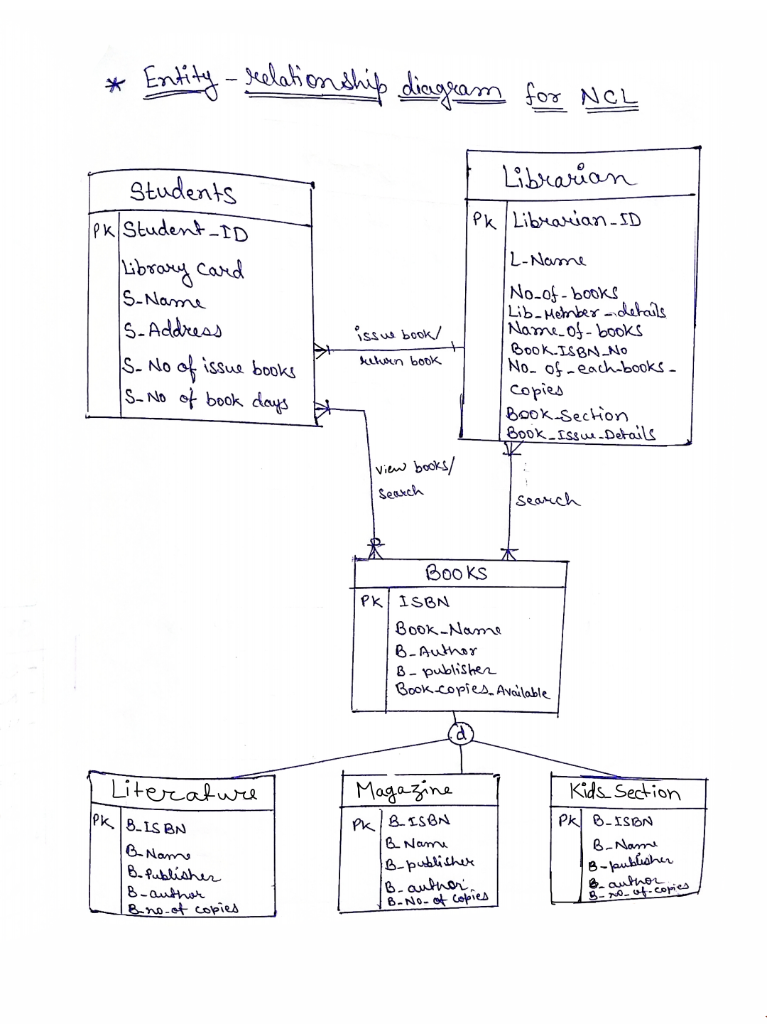 * Entity - relationship diagram for NCL
Students
PK Student_ID
Library Card
S-Name
S-Address
S-No of issue books
S-No of book days
Librarian
PK Librarian_ID
L-Name
No-of-books
Lib-Member-details
Name-of-books
Book-ISBN-No
No-of-each-books-
copies
Book-Section
Book-Issue-Details
issue book/
return book
view books/
search
search
Books
PK ISBN
Book-Name
B-Author
B-publisher
Book-copies-Available
d
Literature
PK B-ISBN
B-Name
B-Publisher
B-author
B-no-of copies
Magazine
PK B-ISBN
B-Name
B-publisher
B-author
B-No-of copies
Kids_Section
PK B-ISBN
B-Name
B-publisher
B-author
B-no-of-copies